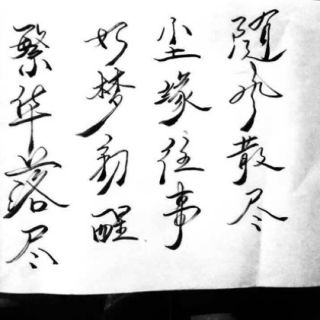 随风散尽
尘缘往事
如梦初醒
繁华落尽